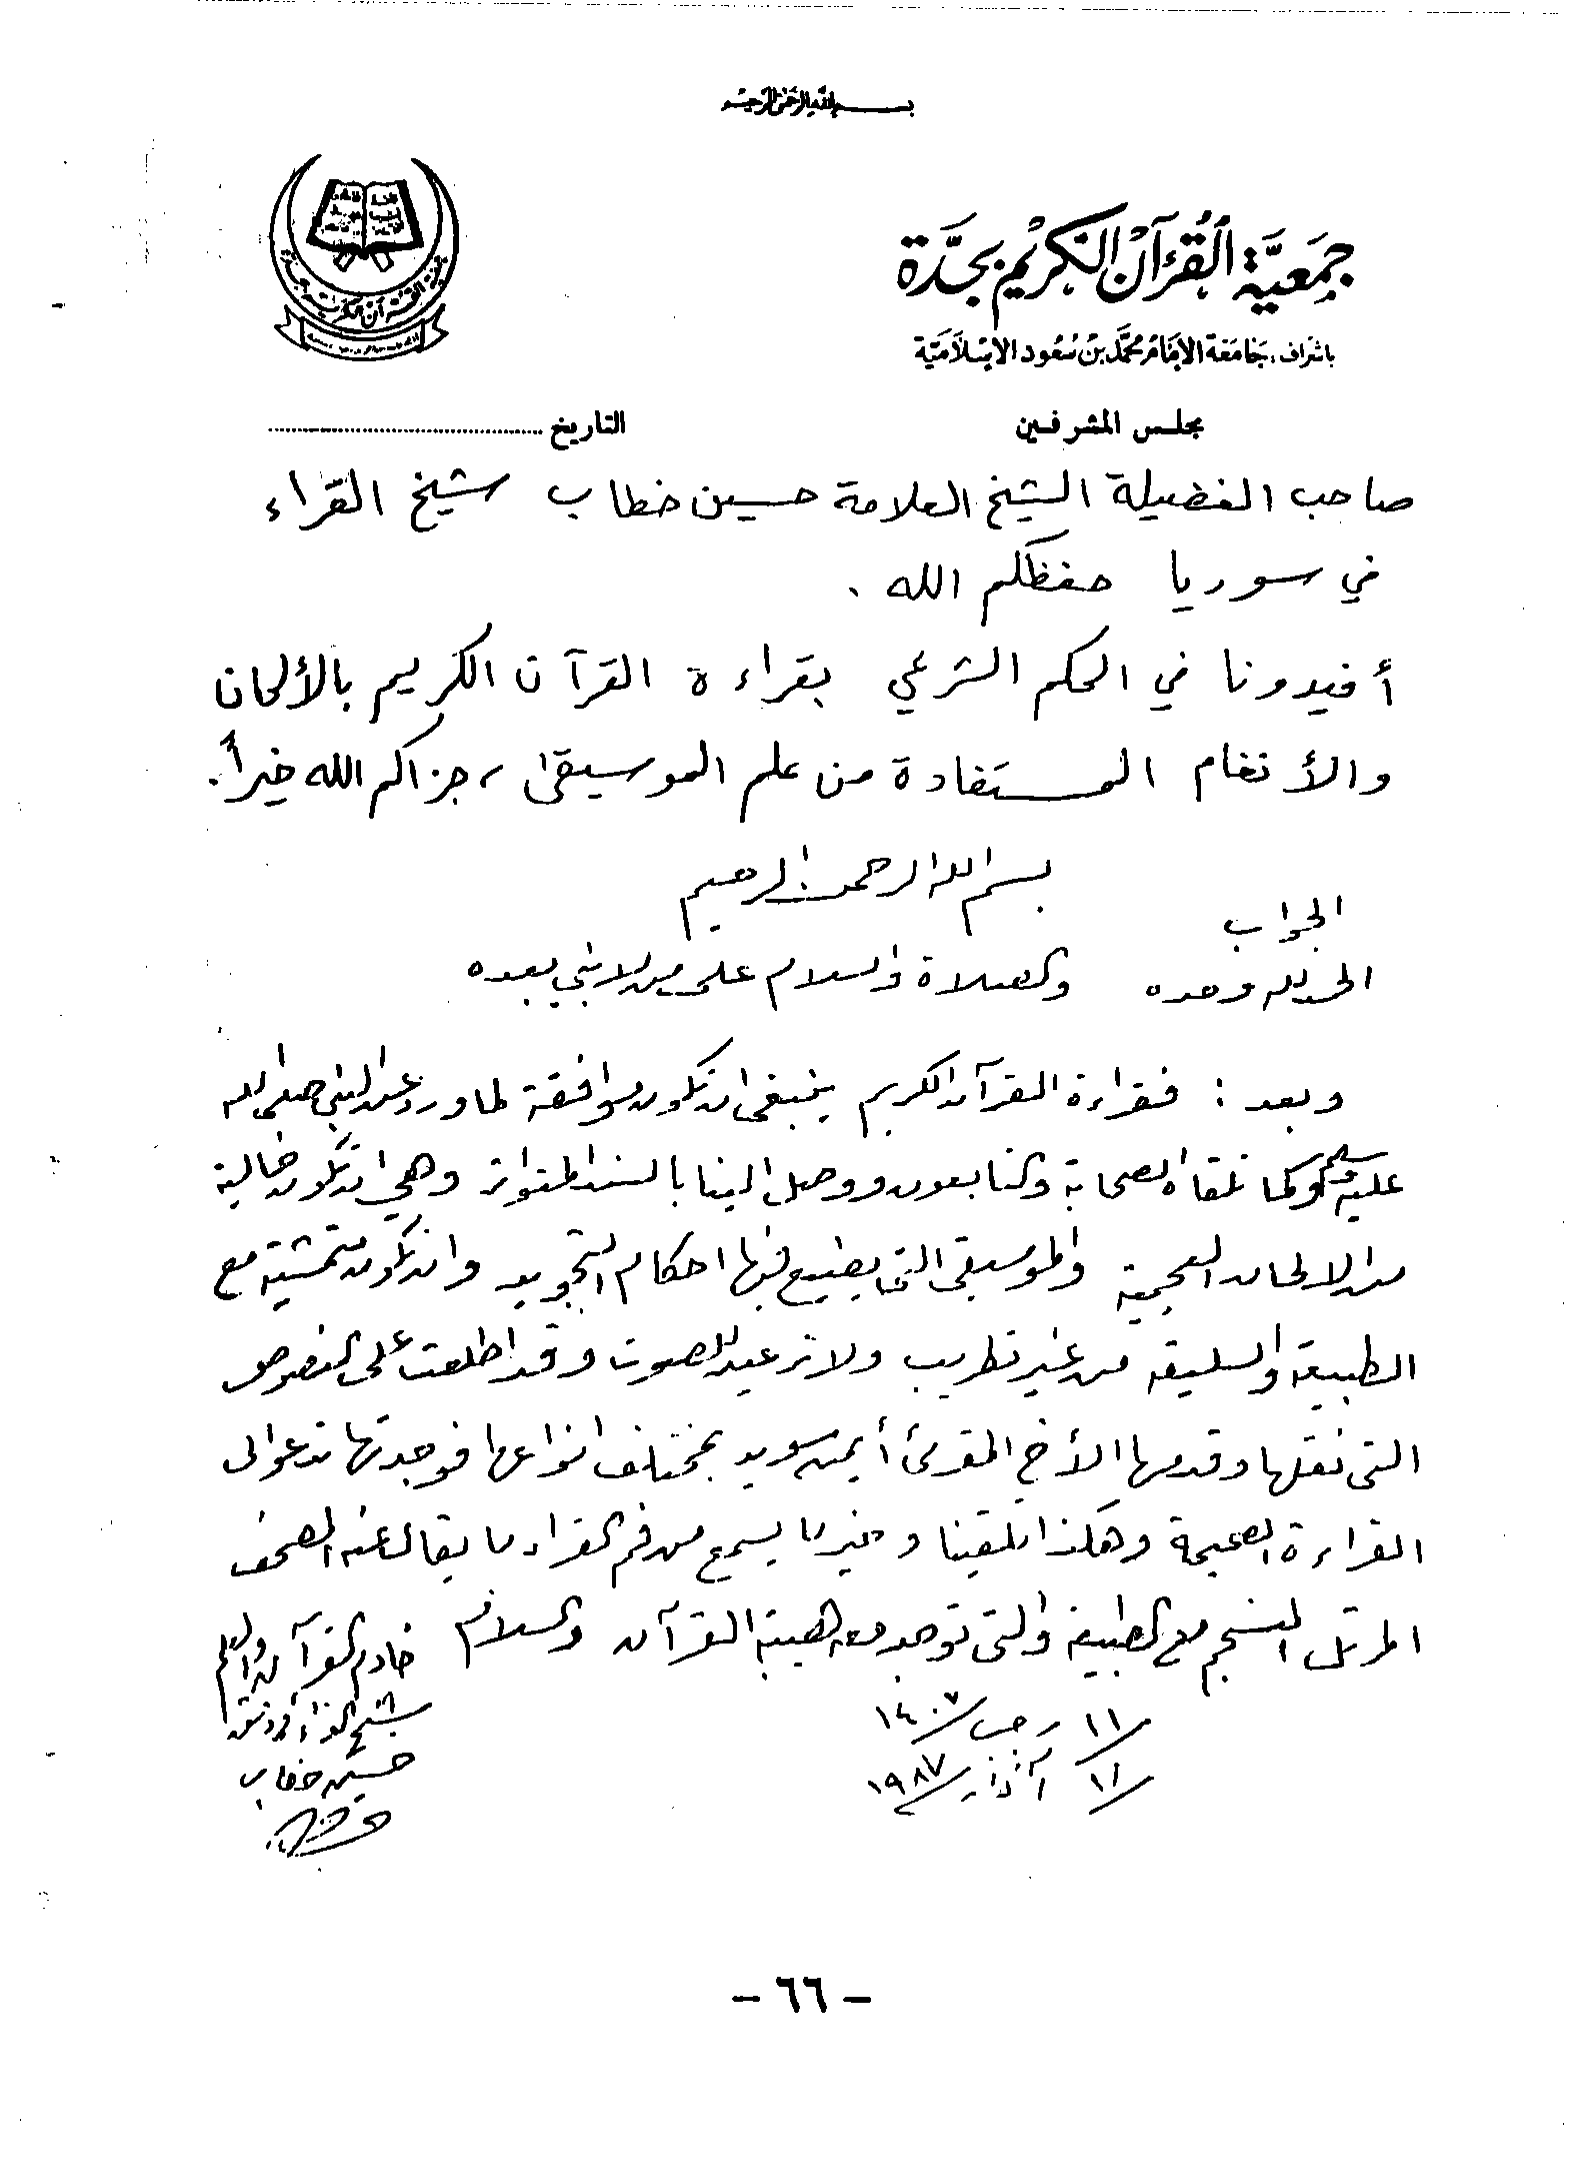 بسم الله الرحمن الرحيم
جَمعِيَّة القُرآن الكَريْم بجَدَّة
باشراف جَامعَة الإمَام محمَّد بن سُعود الإسْلاميَّة
مجلس المشرفين
التاريخ
صاحب الفضيلة الشيخ العلامة حسين خطاب شيخ القراء
في سوريا حفظكم الله .
أفيدونا في الحكم الشرعي بقراءة القرآن الكريم بالألحان
والأنغام المستفادة من علم الموسيقى ، جزاكم الله خيراً .
بسم الله الرحمن الرحيم
الجواب
الحمد لله وحده والصلاة والسلام على من لا نبي بعده
وبعد : فقراءة القرآن الكريم ينبغي ان تكون موافقة لما ورد عن النبي صلى الله
عليه وسلم وكما تلقاه الصحابة والتابعون ووصل الينا بالسند المتواتر وهي ان تكون خالية
من الالحان العجمية والموسيقى التي يضيع فيها احكام التجويد وان تكون متمشية مع
الطبيعة والسليقة من غير تطريب ولا ترعيد للصوت وقد اطلعت على النصوص
التي نقلها وقدمها الأخ المقرئ أيمن سويد بمختلف انواعها فوجدتها تدعو الى
القراءة الصحيحة وهكذا تلقينا وخير ما يسمع من فم القراء ما يقال عنه المصحف
المرتل المنسجم مع الطبيعة والتي توجد معه هيبة القرآن والسلام
خادم القرآن والعلم
شيخ القراء في دمشق
حسين خطاب
١١ رجب ١٤٠٧
١١ آذار ١٩٨٧
- ٦٦ -